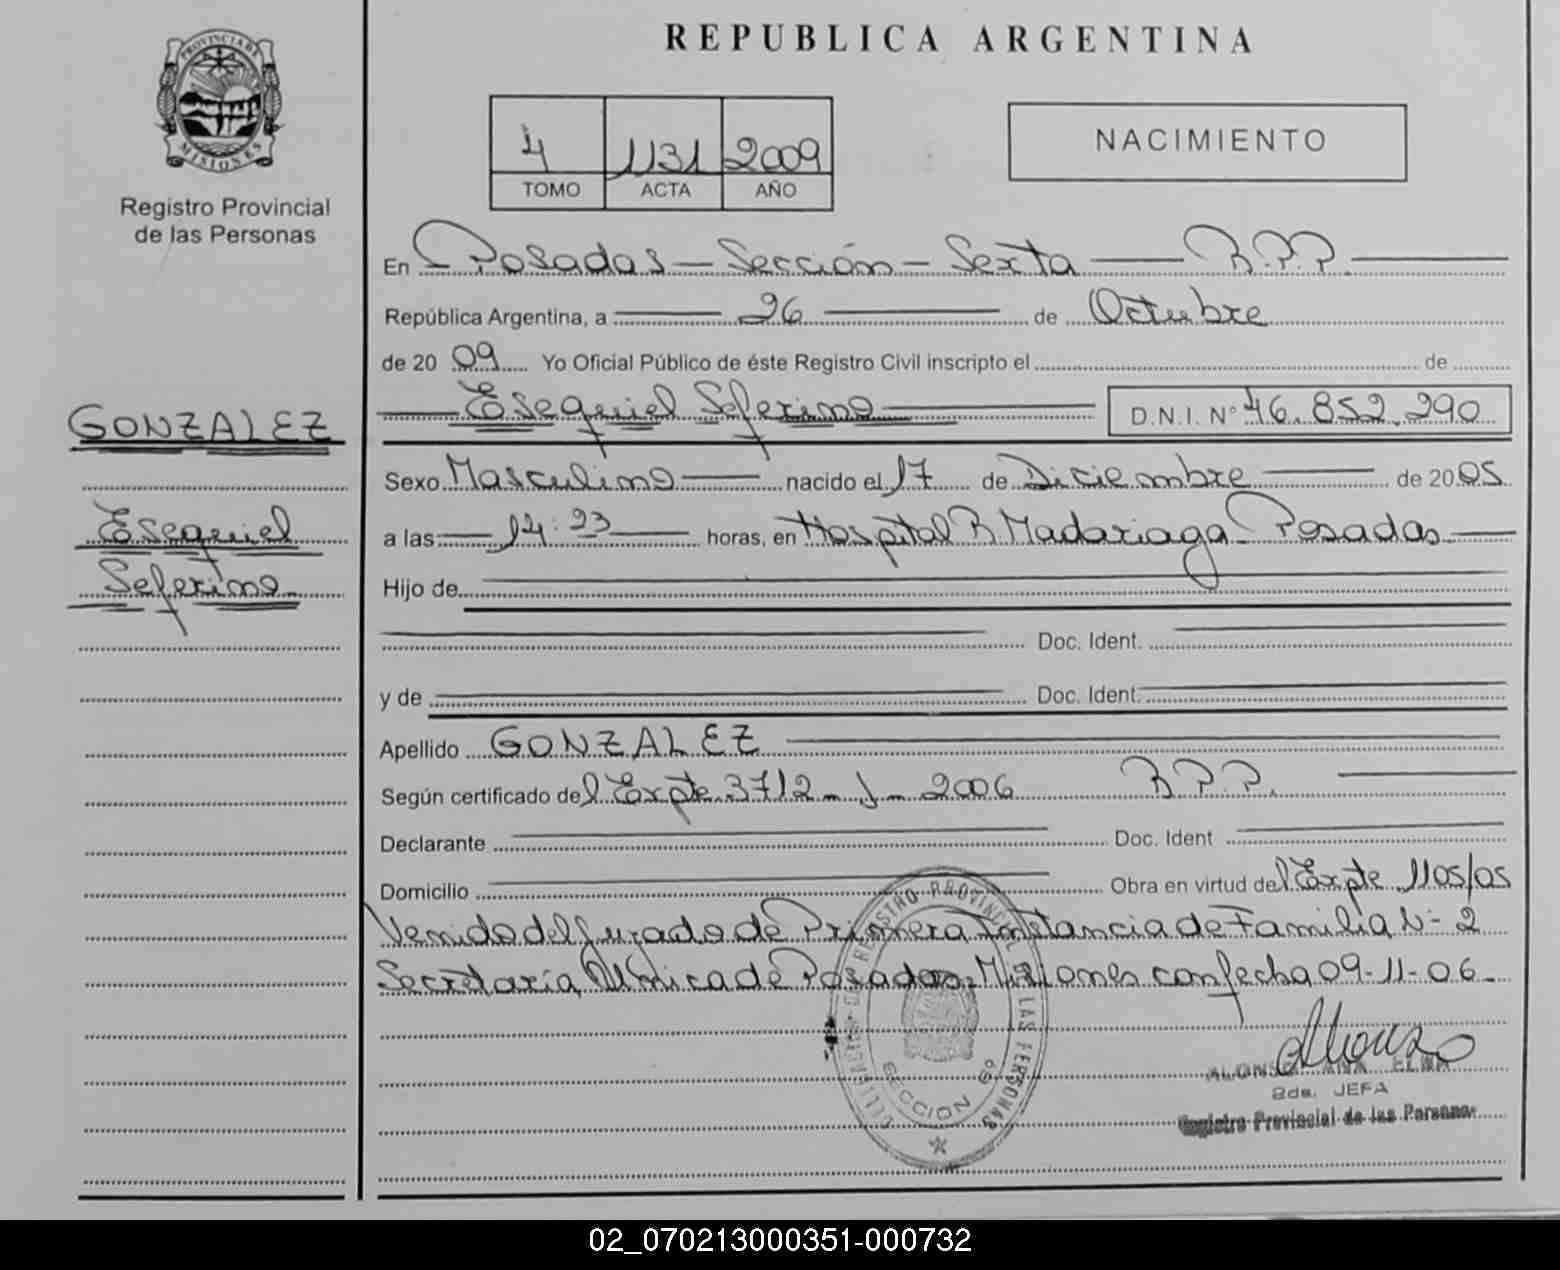 PROVINCIA DE
MISIONES
Registro Provincial
de las Personas
GONZALEZ
Esequiel
Seferino
REPUBLICA ARGENTINA
4 1131 2009
TOMO ACTA AÑO
NACIMIENTO
En Posadas - Sección - Sexta - R.P.P.
República Argentina, a 26 de Octubre
de 2009 Yo Oficial Público de éste Registro Civil inscripto el de
Esequiel Seferino D.N.I. N° 46.852.290
Sexo Masculino nacido el 17 de Diciembre de 2005
a las 14:23 horas, en Hospital R Madariaga Posadas
Hijo de
Doc. Ident.
y de Doc. Ident.
Apellido GONZALEZ
Según certificado del Expte 3712 - J - 2006 R.P.P.
Declarante Doc. Ident
Domicilio Obra en virtud del Expte 1105/05
Venido del Juzgado de Primera Instancia de Familia N- 2
Secretaría Única de Posadas, Misiones con fecha 09-11-06.
DELEGACION DEL REGISTRO PROVINCIAL DE LAS PERSONAS
SECCION 6º
ALONSO ANA ELWA
2da. JEFA
Registro Provincial de las Personas
02_070213000351-000732